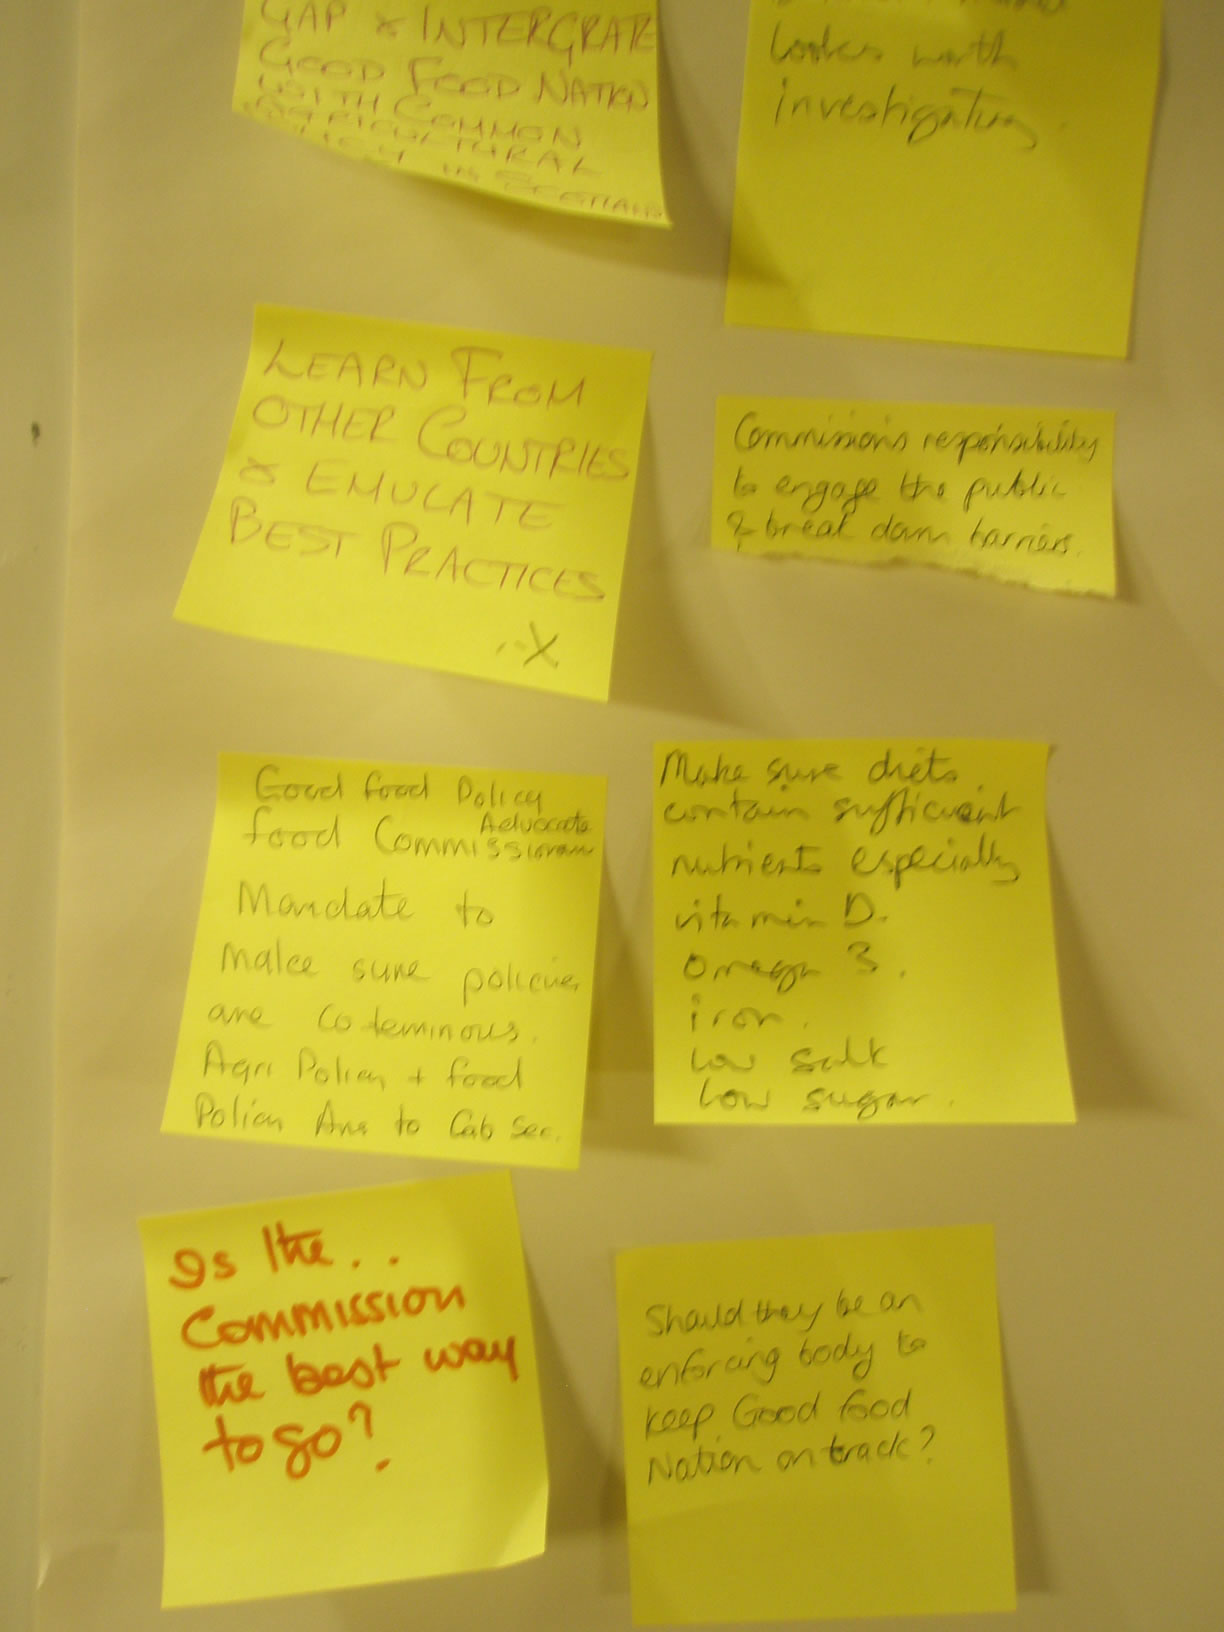 GAP & INTERGRATE
GOOD FOOD NATION
WITH COMMON
AGRICULTURAL
IN SCOTLAND
looks worth
investigating.
LEARN FROM
OTHER COUNTRIES
& EMULATE
BEST PRACTICES
..X
Commission's responsibility
to engage the public
& break down barriers.
Good food Policy
Advocate
food Commissioner
Mandate to
make sure policies
are coteminous.
Agri Policy + food
Policy Ans to Cab Sec.
Make sure diets
contain sufficient
nutrients especially
vitamin D.
Omega 3.
iron.
low salt
low sugar.
Is the..
Commission
the best way
to go?
Should they be an
enforcing body to
keep Good food
Nation on track?